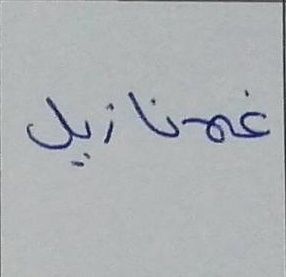 غمنازيل